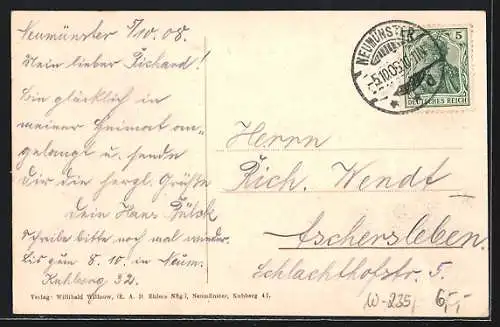 Neumünster 5/10.08.
Mein lieber Richard!
Bin glücklich in
meiner Heimat an-
gelangt u. sende
dir die herzl. Grüße
Dein Hans
Schreibe bitte noch mal wieder.
Bis zum 8.10 in Neum.
Kuhberg 32.
Verlag: Willibald Willuow, (E. A. D. Ehlers Nflg.), Neumünster, Kuhberg 47.
NEUMÜNSTER
5
DEUTSCHES REICH
Herrn
Rich. Wendt
Aschersleben.
Schlachthofstr. 5.
W-235,
6,-,-